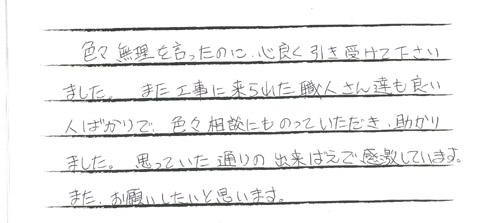 色々無理を言ったのに、心良く引き受けて下さい
ました。 また工事に来られた職人さん達も良い
人ばかりで、色々相談にものっていただき、助かり
ました。 思っていた通りの出来ばえで感激しています。
また、お願いしたいと思います。